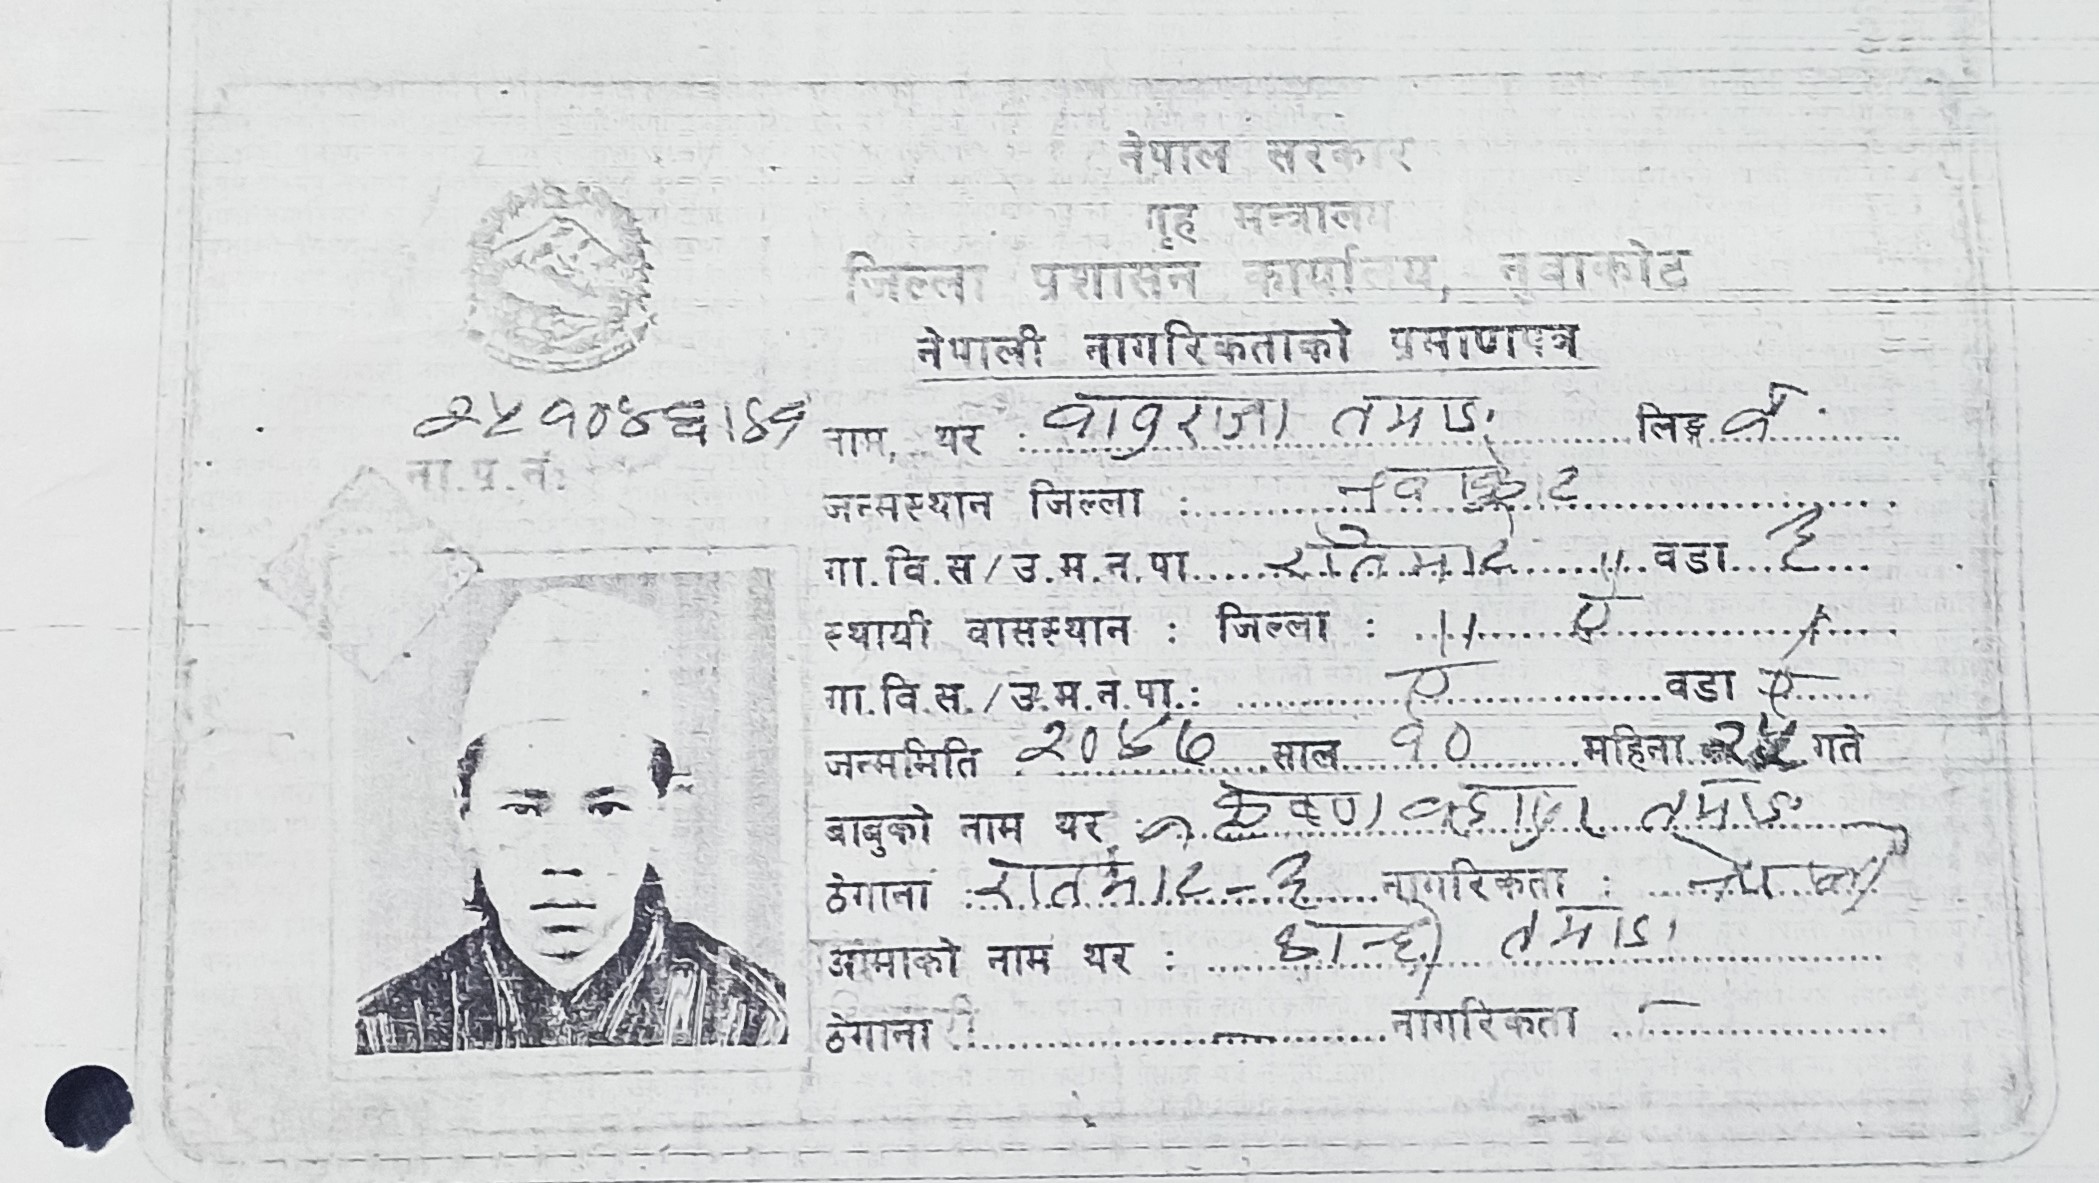 नेपाल सरकार
गृह मन्त्रालय
जिल्ला प्रशासन कार्यालय, नुवाकोट
नेपाली नागरिकताको प्रमाणपत्र
ना.प्र.नं.
नाम, थर : तमाङ लिङ्ग
जन्मस्थान जिल्ला : नुवाकोट
गा.वि.स/उ.म.न.पा. वडा ३
स्थायी वासस्थान : जिल्ला : ,, ऐ
गा.वि.स./उ.म.न.पा.: ऐ वडा ऐ
जन्ममिति २०४७ साल १० महिना गते
बाबुको नाम थर : कृष्ण बहादुर तमाङ
ठेगाना : रातमाटे-३ नागरिकता : नेपाली
आमाको नाम थर : तमाङ
ठेगाना नागरिकता